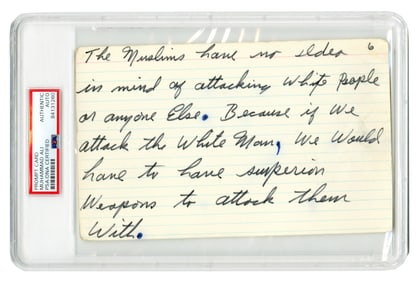 PROMPT CARD
MUHAMMAD ALI
PSA/DNA CERTIFIED
AUTHENTIC
AUTO
84131280
6
The Muslims have no idea
in mind of attacking White People
or anyone Else. Because if We
attack the White Man, We Would
have to have superior
Weapons to attack them
With.